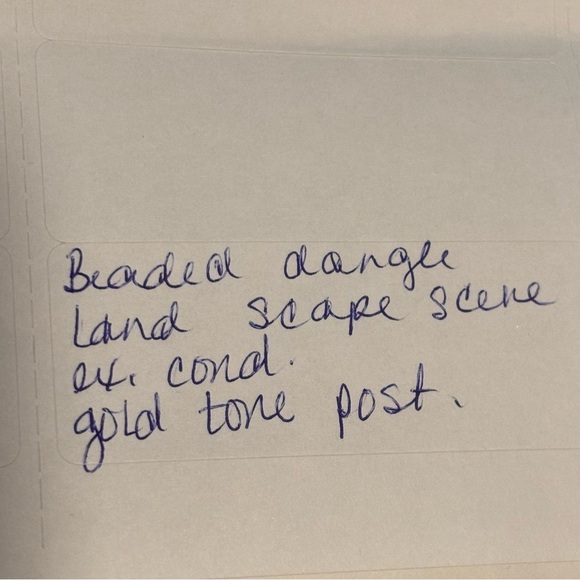 Beaded dangle
Land scape scene
ex. cond.
gold tone post.